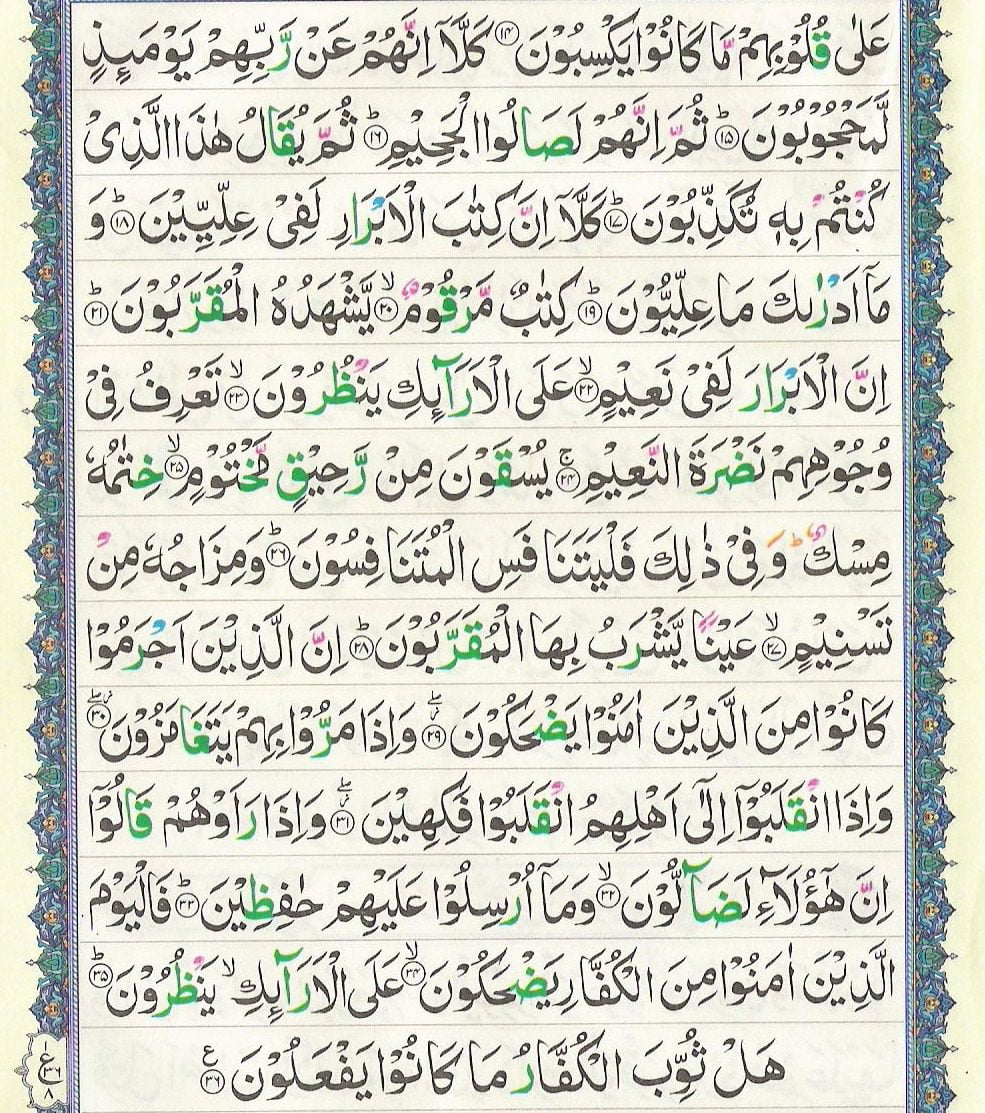 عَلٰى قُلُوْبِهِمْ مَّا كَانُوْا يَكْسِبُوْنَ ۝۱۴ كَلَّاۤ اِنَّهُمْ عَنْ رَّبِّهِمْ يَوْمَىِٕذٍ
لَّمَحْجُوْبُوْنَؕ ۝۱۵ ثُمَّ اِنَّهُمْ لَصَالُوا الْجَحِيْمِؕ ۝۱۶ ثُمَّ يُقَالُ هٰذَا الَّذِىْ
كُنْتُمْ بِهٖ تُكَذِّبُوْنَؕ ۝۱۷ كَلَّاۤ اِنَّ كِتٰبَ الْاَبْرَارِ لَفِىْ عِلِّيِّيْنَؕ ۝۱۸ وَ
مَاۤ اَدْرٰىكَ مَا عِلِّيُّوْنَؕ ۝۱۹ كِتٰبٌ مَّرْقُوْمٌۙ ۝۲۰ يَّشْهَدُهُ الْمُقَرَّبُوْنَؕ ۝۲۱
اِنَّ الْاَبْرَارَ لَفِىْ نَعِيْمٍۙ ۝۲۲ عَلَى الْاَرَآىِٕكِ يَنْظُرُوْنَۙ ۝۲۳ تَعْرِفُ فِىْ
وُجُوْهِهِمْ نَضْرَةَ النَّعِيْمِۚ ۝۲۴ يُسْقَوْنَ مِنْ رَّحِيْقٍ مَّخْتُوْمٍۙ ۝۲۵ خِتٰمُهٗ
مِسْكٌؕ وَفِىْ ذٰلِكَ فَلْيَتَنَافَسِ الْمُتَنَافِسُوْنَؕ ۝۲۶ وَمِزَاجُهٗ مِنْ
تَسْنِيْمٍۙ ۝۲۷ عَيْنًا يَّشْرَبُ بِهَا الْمُقَرَّبُوْنَؕ ۝۲۸ اِنَّ الَّذِيْنَ اَجْرَمُوْا
كَانُوْا مِنَ الَّذِيْنَ اٰمَنُوْا يَضْحَكُوْنَ ۝۲۹ وَاِذَا مَرُّوْا بِهِمْ يَتَغَامَزُوْنَ ۝۳۰
وَاِذَا انْقَلَبُوْۤا اِلٰٓى اَهْلِهِمُ انْقَلَبُوْا فَكِهِيْنَ ۝۳۱ وَاِذَا رَاَوْهُمْ قَالُوْۤا
اِنَّ هٰۤؤُلَآءِ لَضَآلُّوْنَۙ ۝۳۲ وَمَاۤ اُرْسِلُوْا عَلَيْهِمْ حٰفِظِيْنَؕ ۝۳۳ فَالْيَوْمَ
الَّذِيْنَ اٰمَنُوْا مِنَ الْكُفَّارِ يَضْحَكُوْنَۙ ۝۳۴ عَلَى الْاَرَآىِٕكِۙ يَنْظُرُوْنَؕ ۝۳۵
هَلْ ثُوِّبَ الْكُفَّارُ مَا كَانُوْا يَفْعَلُوْنَ ۝۳۶ ع
ع ۳۶ ۸